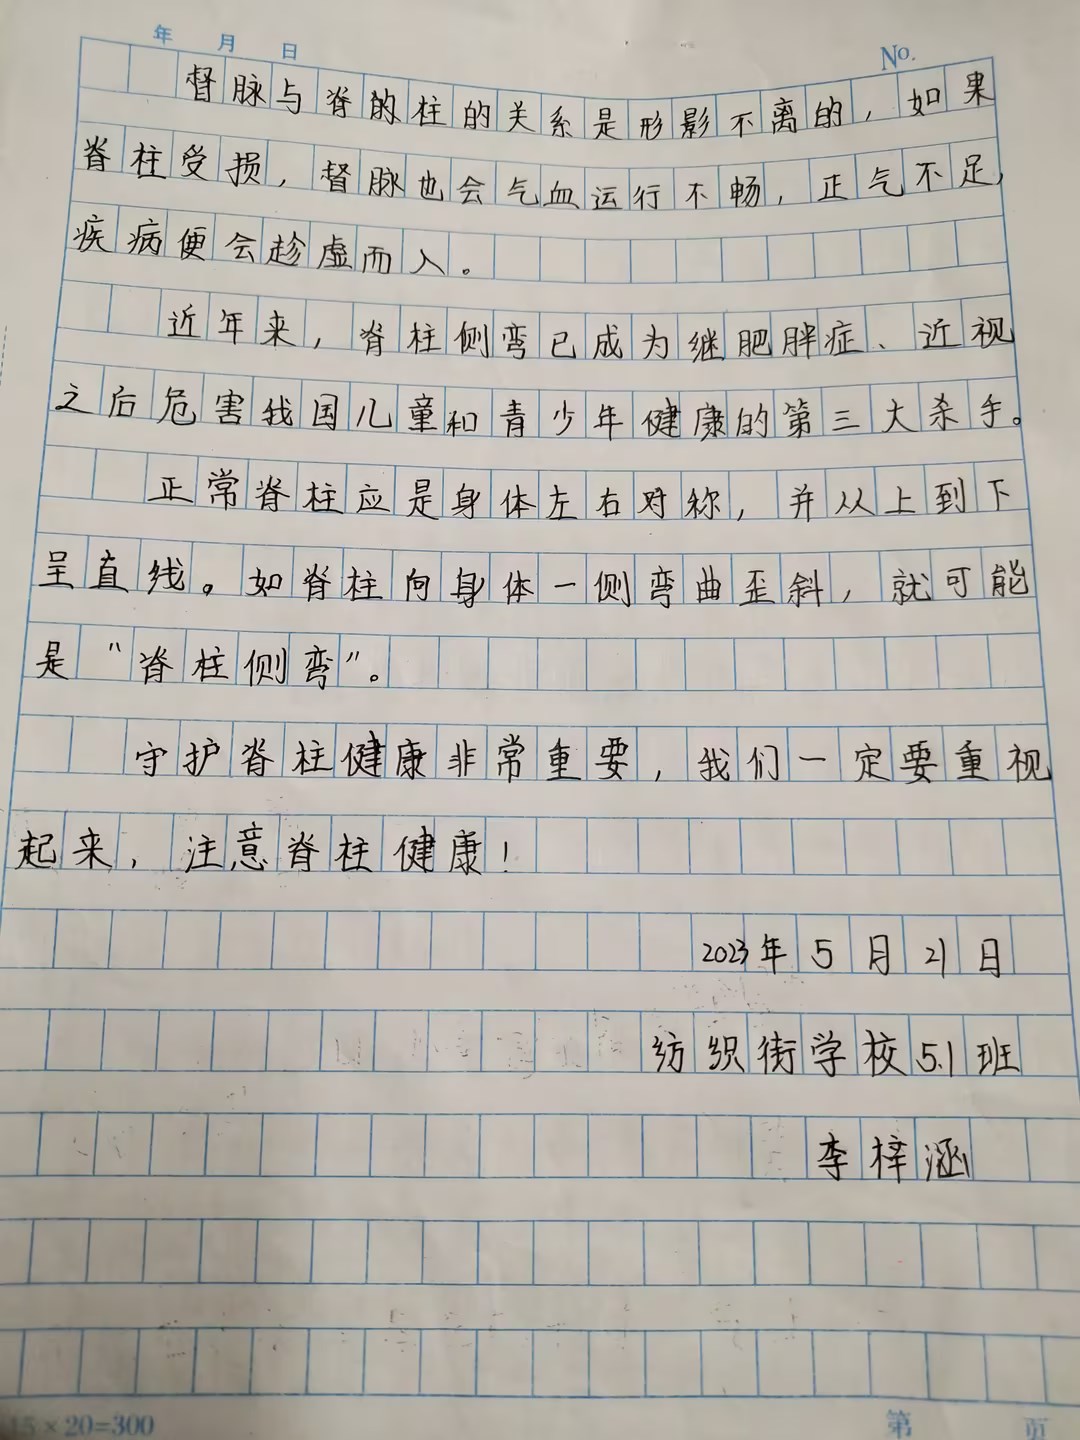 年 月 日 No.
督脉与脊的柱的关系是形影不离的，如果
脊柱受损，督脉也会气血运行不畅，正气不足，
疾病便会趁虚而入。
近年来，脊柱侧弯已成为继肥胖症、近视
之后危害我国儿童和青少年健康的第三大杀手。
正常脊柱应是身体左右对称，并从上到下
呈直线。如脊柱向身体一侧弯曲歪斜，就可能
是“脊柱侧弯”。
守护脊柱健康非常重要，我们一定要重视
起来，注意脊柱健康！
2023年5月21日
纺织街学校5.1班
李梓涵
15×20=300 第 页